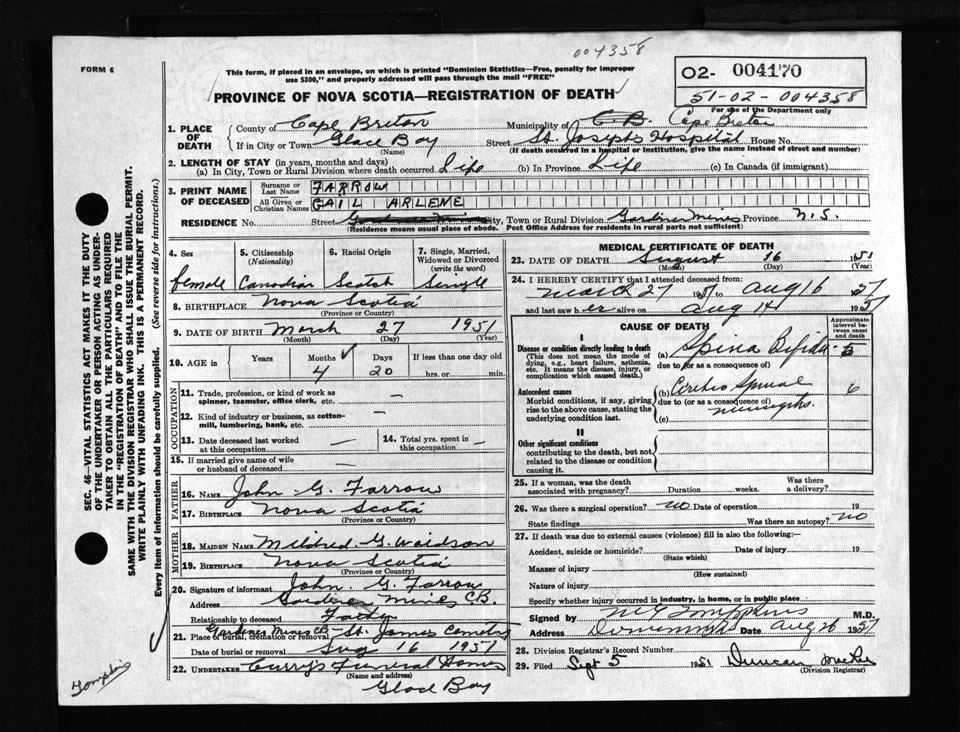 004358
FORM 6
This form, if placed in an envelope, on which is printed "Dominion Statistics—Free, penalty for improper
use $300," and properly addressed will pass through the mail "FREE"
02- 004170
51-02-004358
For use of the Department only
PROVINCE OF NOVA SCOTIA—REGISTRATION OF DEATH
1. PLACE OF DEATH
County of Cape Breton Municipality of C.B. Cape Breton
If in City or Town Glace Bay Street St. Joseph's Hospital House No.
(Name) (If death occurred in a hospital or institution, give the name instead of street and number)
2. LENGTH OF STAY (in years, months and days)
(a) In City, Town or Rural Division where death occurred Life (b) In Province Life (c) In Canada (if immigrant)
3. PRINT NAME OF DECEASED
Surname or Last Name FARROW
All Given or Christian Names GAIL ARLENE
RESIDENCE No. Street City, Town or Rural Division Gardiner Mines Province N.S.
(Residence means usual place of abode. Post Office Address for residents in rural parts not sufficient)
4. Sex female
5. Citizenship (Nationality) Canadian
6. Racial Origin Scotch
7. Single, Married, Widowed or Divorced (write the word) Single
8. BIRTHPLACE Nova Scotia
(Province or Country)
9. DATE OF BIRTH March 27 1951
(Month) (Day) (Year)
10. AGE in Years Months Days If less than one day old
4 20 hrs. or min.
OCCUPATION
11. Trade, profession, or kind of work as
spinner, teamster, office clerk, etc. —
12. Kind of industry or business, as cotton-
mill, lumbering, bank, etc. —
13. Date deceased last worked
at this occupation —
14. Total yrs. spent in
this occupation —
15. If married give name of wife
or husband of deceased —
FATHER
16. NAME John G. Farrow
17. BIRTHPLACE Nova Scotia
(Province or Country)
MOTHER
18. MAIDEN NAME Mildred G.
19. BIRTHPLACE Nova Scotia
(Province or Country)
20. Signature of informant John G. Farrow
Address Gardiner Mines C.B.
Relationship to deceased Father
21. Place of burial, cremation or removal Gardiner Mines CB St. James Cemetery
Date of burial or removal Aug 16 1951
22. UNDERTAKER Curry's Funeral Home
(Name and address)
Glace Bay
MEDICAL CERTIFICATE OF DEATH
23. DATE OF DEATH August 16 1951
(Month) (Day) (Year)
24. I HEREBY CERTIFY that I attended deceased from:
March 27 1951 to Aug 16 1951
and last saw h er alive on Aug 14 1951
CAUSE OF DEATH
Approximate interval between onset and death
I
Disease or condition directly leading to death
(This does not mean the mode of
dying, e.g., heart failure, asthenia,
etc. It means the disease, injury, or
complication which caused death.)
(a) Spina Bifida
due to (or as a consequence of)
Antecedent causes
Morbid conditions, if any, giving
rise to the above cause, stating the
underlying condition last.
(b) Cerebro Spinal 6
due to (or as a consequence of)
meningitis.
(c)
II
Other significant conditions
contributing to the death, but not
related to the disease or condition
causing it.
25. If a woman, was the death
associated with pregnancy? Duration weeks. Was there a delivery?
26. Was there a surgical operation? no Date of operation 19
State findings Was there an autopsy? no
27. If death was due to external causes (violence) fill in also the following:—
Accident, suicide or homicide? Date of injury 19
(State which)
Manner of injury
(How sustained)
Nature of injury
Specify whether injury occurred in industry, in home, or in public place
Signed by M G Tompkins M.D.
Address Dominion NS Date Aug 26 1951
28. Division Registrar's Record Number
29. Filed Sept 5 1951 Duncan
(Division Registrar)
SEC. 46—VITAL STATISTICS ACT MAKES IT THE DUTY
OF THE UNDERTAKER OR PERSON ACTING AS UNDER-
TAKER TO OBTAIN ALL THE PARTICULARS REQUIRED
IN THE "REGISTRATION OF DEATH" AND TO FILE THE
SAME WITH THE DIVISION REGISTRAR WHO SHALL ISSUE THE BURIAL PERMIT.
WRITE PLAINLY WITH UNFADING INK. THIS IS A PERMANENT RECORD.
Every item of information should be carefully supplied. (See reverse side for instructions.)
Tompkins